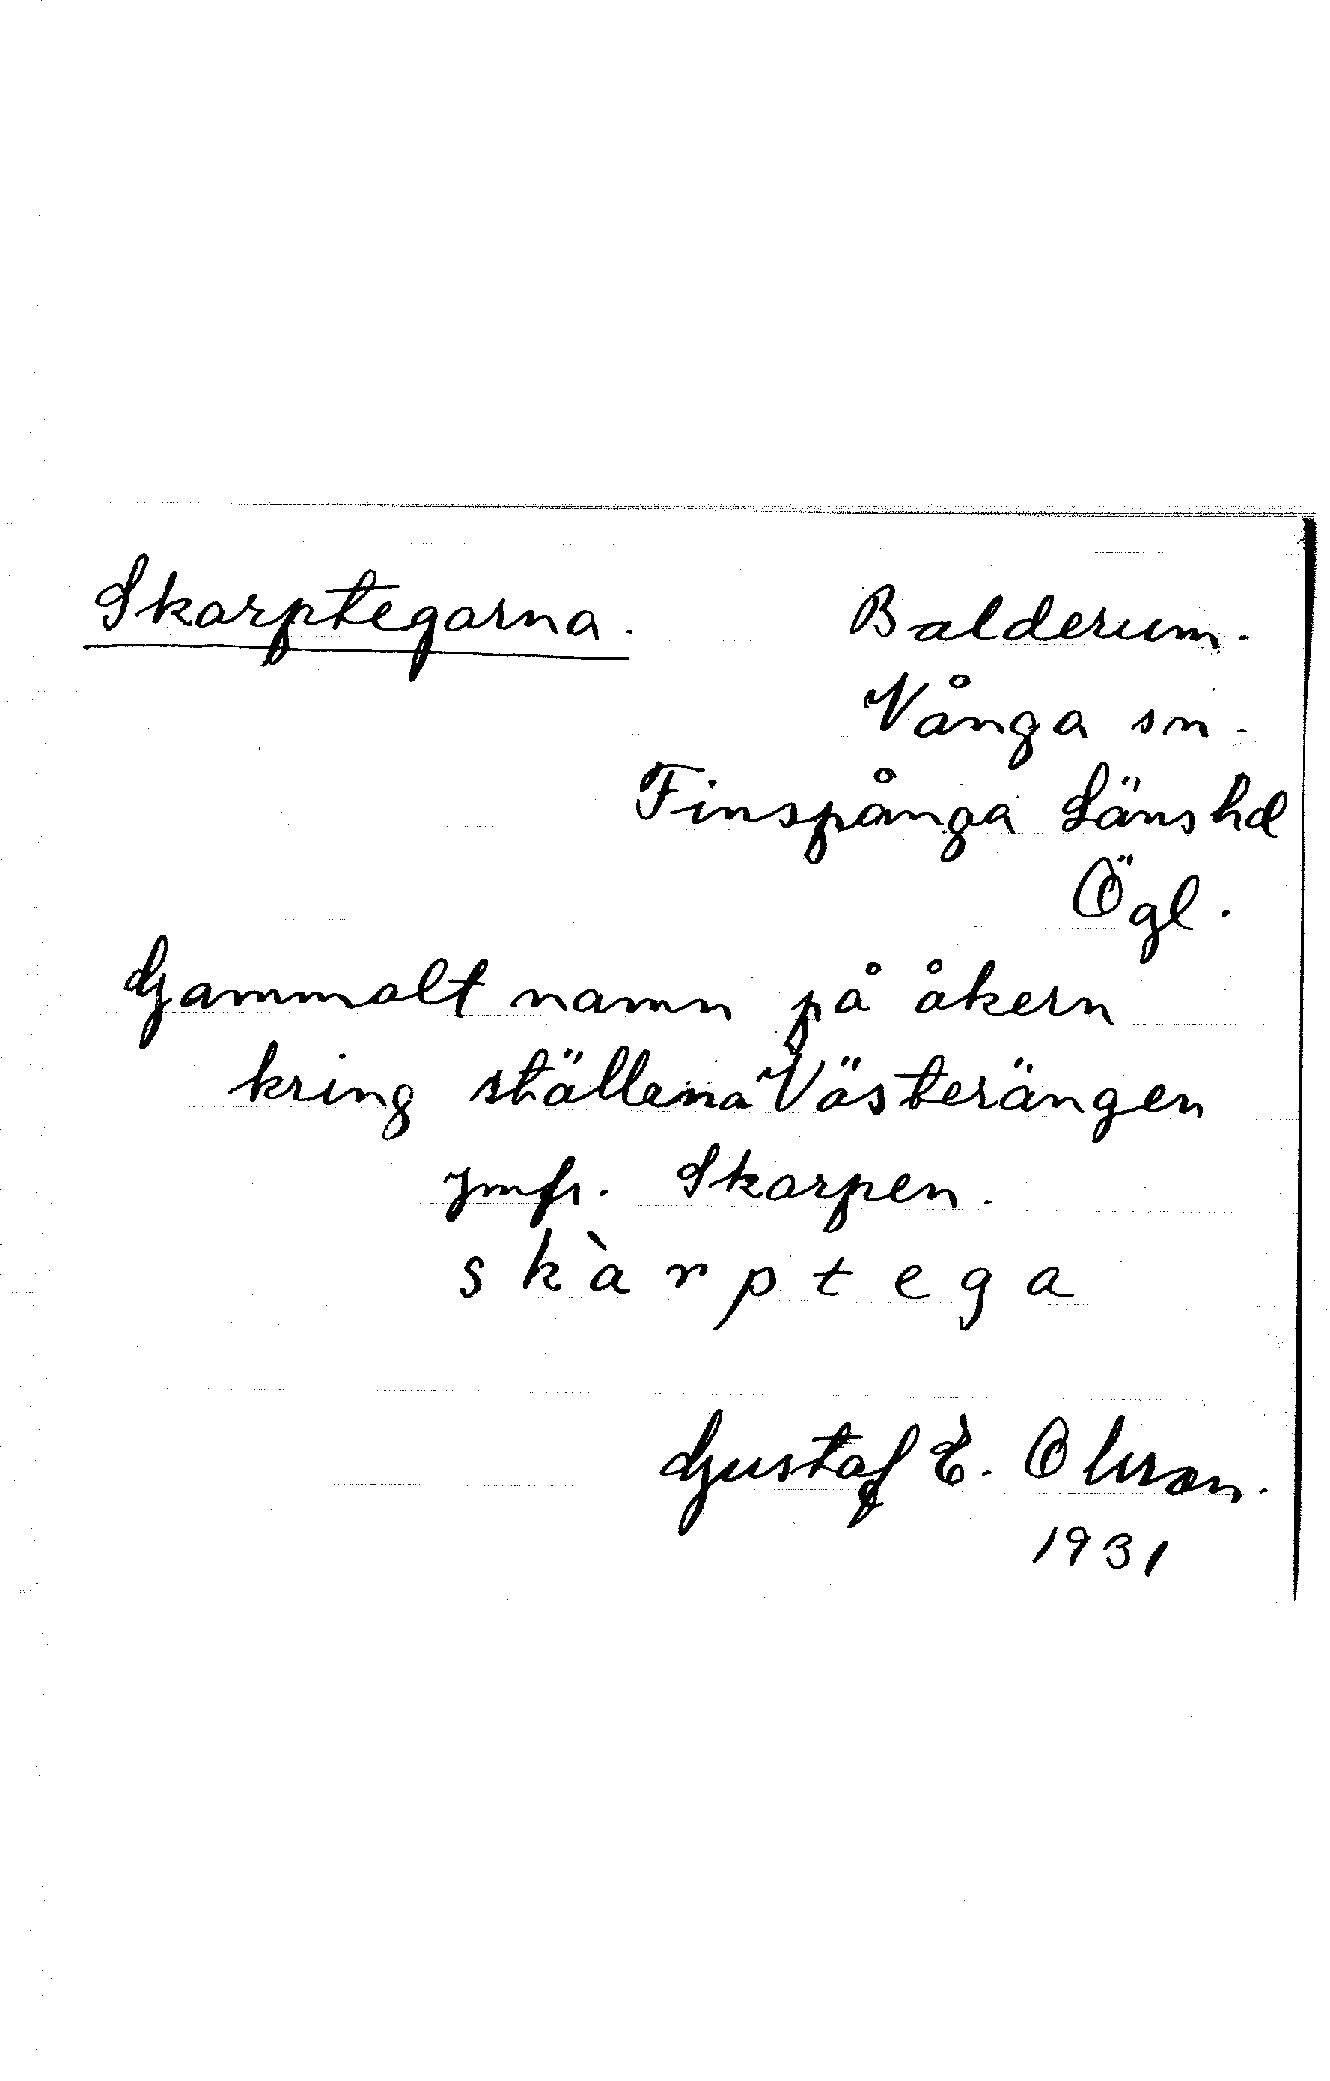 Skarptegarna. Balderum.
Vånga sn.
Finspånga Länshd
Ögl.
Gammalt namn på åkern
kring ställena Västerängen
jmfr. Skarpen.
skàrptega
Gustaf E. Olsson.
1931